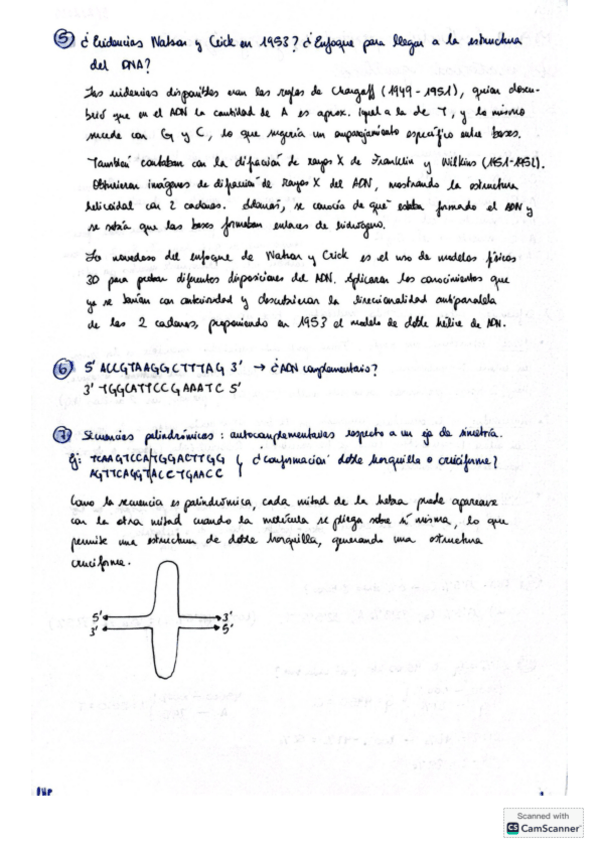 5 ¿Evidencias Watson y Crick en 1953? ¿Enfoque para llegar a la estructura
del DNA?
Las evidencias disponibles eran las reglas de Chargaff (1949-1951), quien descu-
brió que en el ADN la cantidad de A es aprox. igual a la de T, y lo mismo
sucede con G y C, lo que sugería un emparejamiento específico entre bases.
También contaban con la difracción de rayos X de Franklin y Wilkins (1951-1952).
Obtuvieron imágenes de difracción de rayos X del ADN, mostrando la estructura
helicoidal con 2 cadenas. Además, se conocía de qué estaba formado el ADN y
se sabía que las bases formaban enlaces de hidrógeno.
Lo novedoso del enfoque de Watson y Crick es el uso de modelos físicos
3D para probar diferentes disposiciones del ADN. Aplicaron los conocimientos que
ya se tenían con anterioridad y descubrieron la direccionalidad antiparalela
de las 2 cadenas, proponiendo en 1953 el modelo de doble hélice de ADN.
6 5' ACCGTAAGGCTTTAG 3' → ¿ADN complementario?
3' TGGCATTCCGAAATC 5'
7 Secuencias palindrómicas: autocomplementarias respecto a un eje de simetría.
Ej: TCAAGTCCATGGACTTGG } ¿conformación doble horquilla o cruciforme?
AGTTCAGGTACCTGAACC
Como la secuencia es palindrómica, cada mitad de la hebra puede aparearse
con la otra mitad cuando la molécula se pliega sobre sí misma, lo que
permite una estructura de doble horquilla, generando una estructura
cruciforme.
5' 3'
3' 5'
Scanned with
CS CamScanner